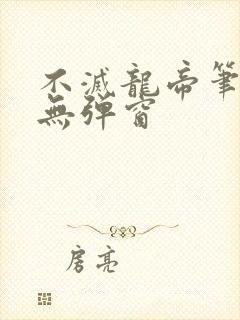 不滅龍帝筆
無弹窗
房亮